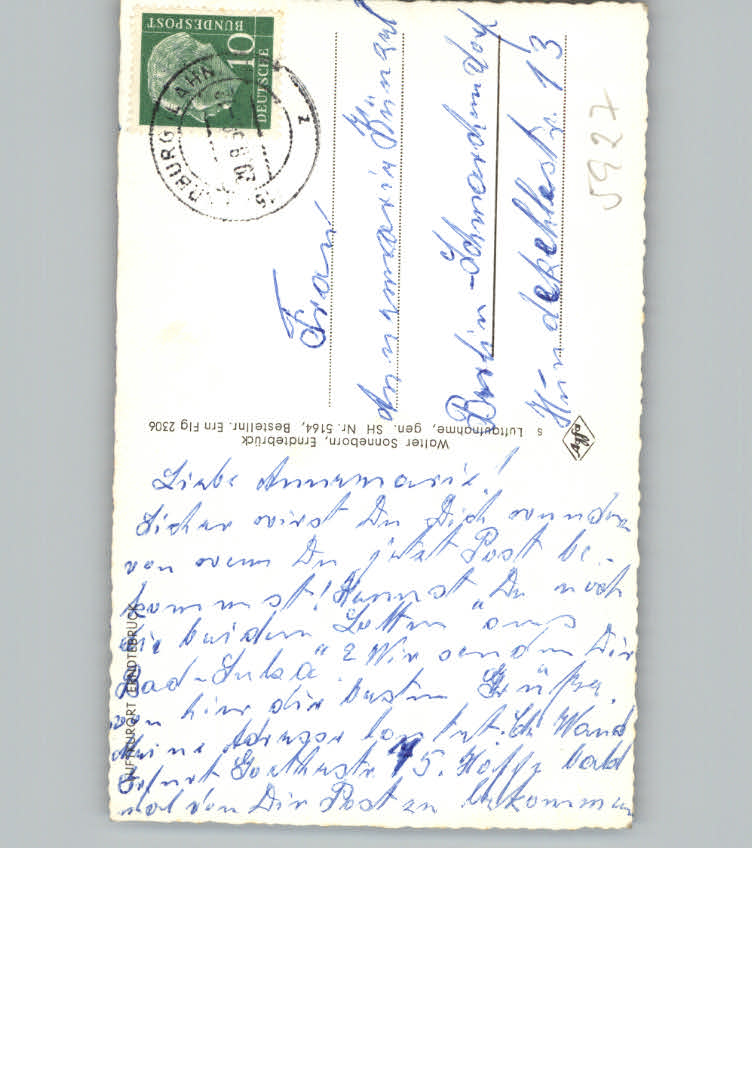 DEUTSCHE
BUNDESPOST
10
MARBURG LAHN
z
5927
Frau
Annemarie
Berlin-Schmarchendorf
Hundekehlestr. 13
Walter Sonneborn, Erndtebrück
s Luftaufnahme, gen. SH Nr. 5164, Bestellnr. Ern Flg 2306
LUFTKURORT ERNDTEBRÜCK
Liebe Annemarie!
Sicher wirst Du Dich wundern
von wem Du jetzt Post be-
kommst! Kennst "Du noch
die beiden Lotten aus
Bad-Sulza"? Wir senden Dir
von hier die besten Grüße.
Meine Adresse lautet: Ch. Wand
Erfurt Goethestr. 15. Hoffe bald
mal von Dir Post zu bekommen